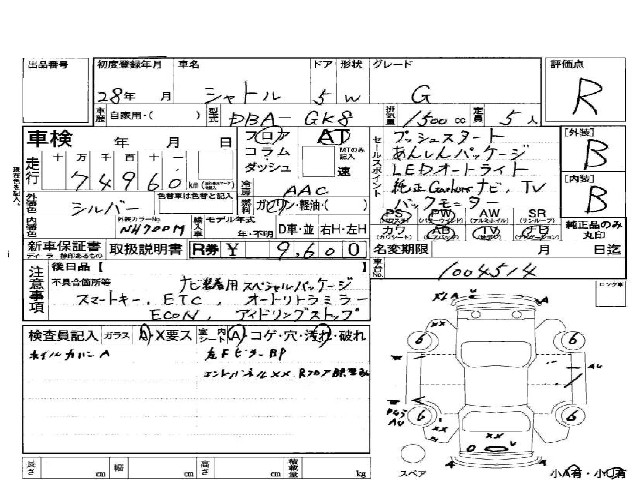 出品番号 初度登録年月 車名 ドア 形状 グレード 評価点
28年 月 シャトル 5 W G R
車歴 自家用・( ) 型式 DBA-GK8 排気量 1500 cc 定員 5人
車検 年 月 日 フロア AT プッシュスタート [外装]
コラム MTのみ記入 あんしんパッケージ B
ダッシュ 速 セールスポイント LEDオートライト
走行 十 万 千 百 十 一 74960 km [内装]
冷房 AAC 純正 ナビ、TV B
外装色 シルバー 色替車は色替と記入 燃料 ガソリン・軽油・( ) バックモニター
PS PW AW SR
内装色 外装カラーNo NH700M 輸入車 モデル年式 年・不明 D車・並 右H・左H カワ AB TV
純正品のみ丸印
新車保証書 取扱説明書 R券 ¥ 9,600 名変期限 月 日
注意事項 後日品 [ 車台No. 1004514
不具合箇所等 ナビ装着用スペシャルパッケージ
スマートキー、ETC、オートリトラミラー
ECON、アイドリングストップ
検査員記入 ガラス A・X要ス 室内シート A・コゲ・穴・汚れ・破れ
ホイルカバーA 左FピラーBP
XLA
XX
6 6
AU
P45 AU
6 6
XX
スペア 小A有・小U有
長さ cm 幅 cm 高さ cm 積載量 kg